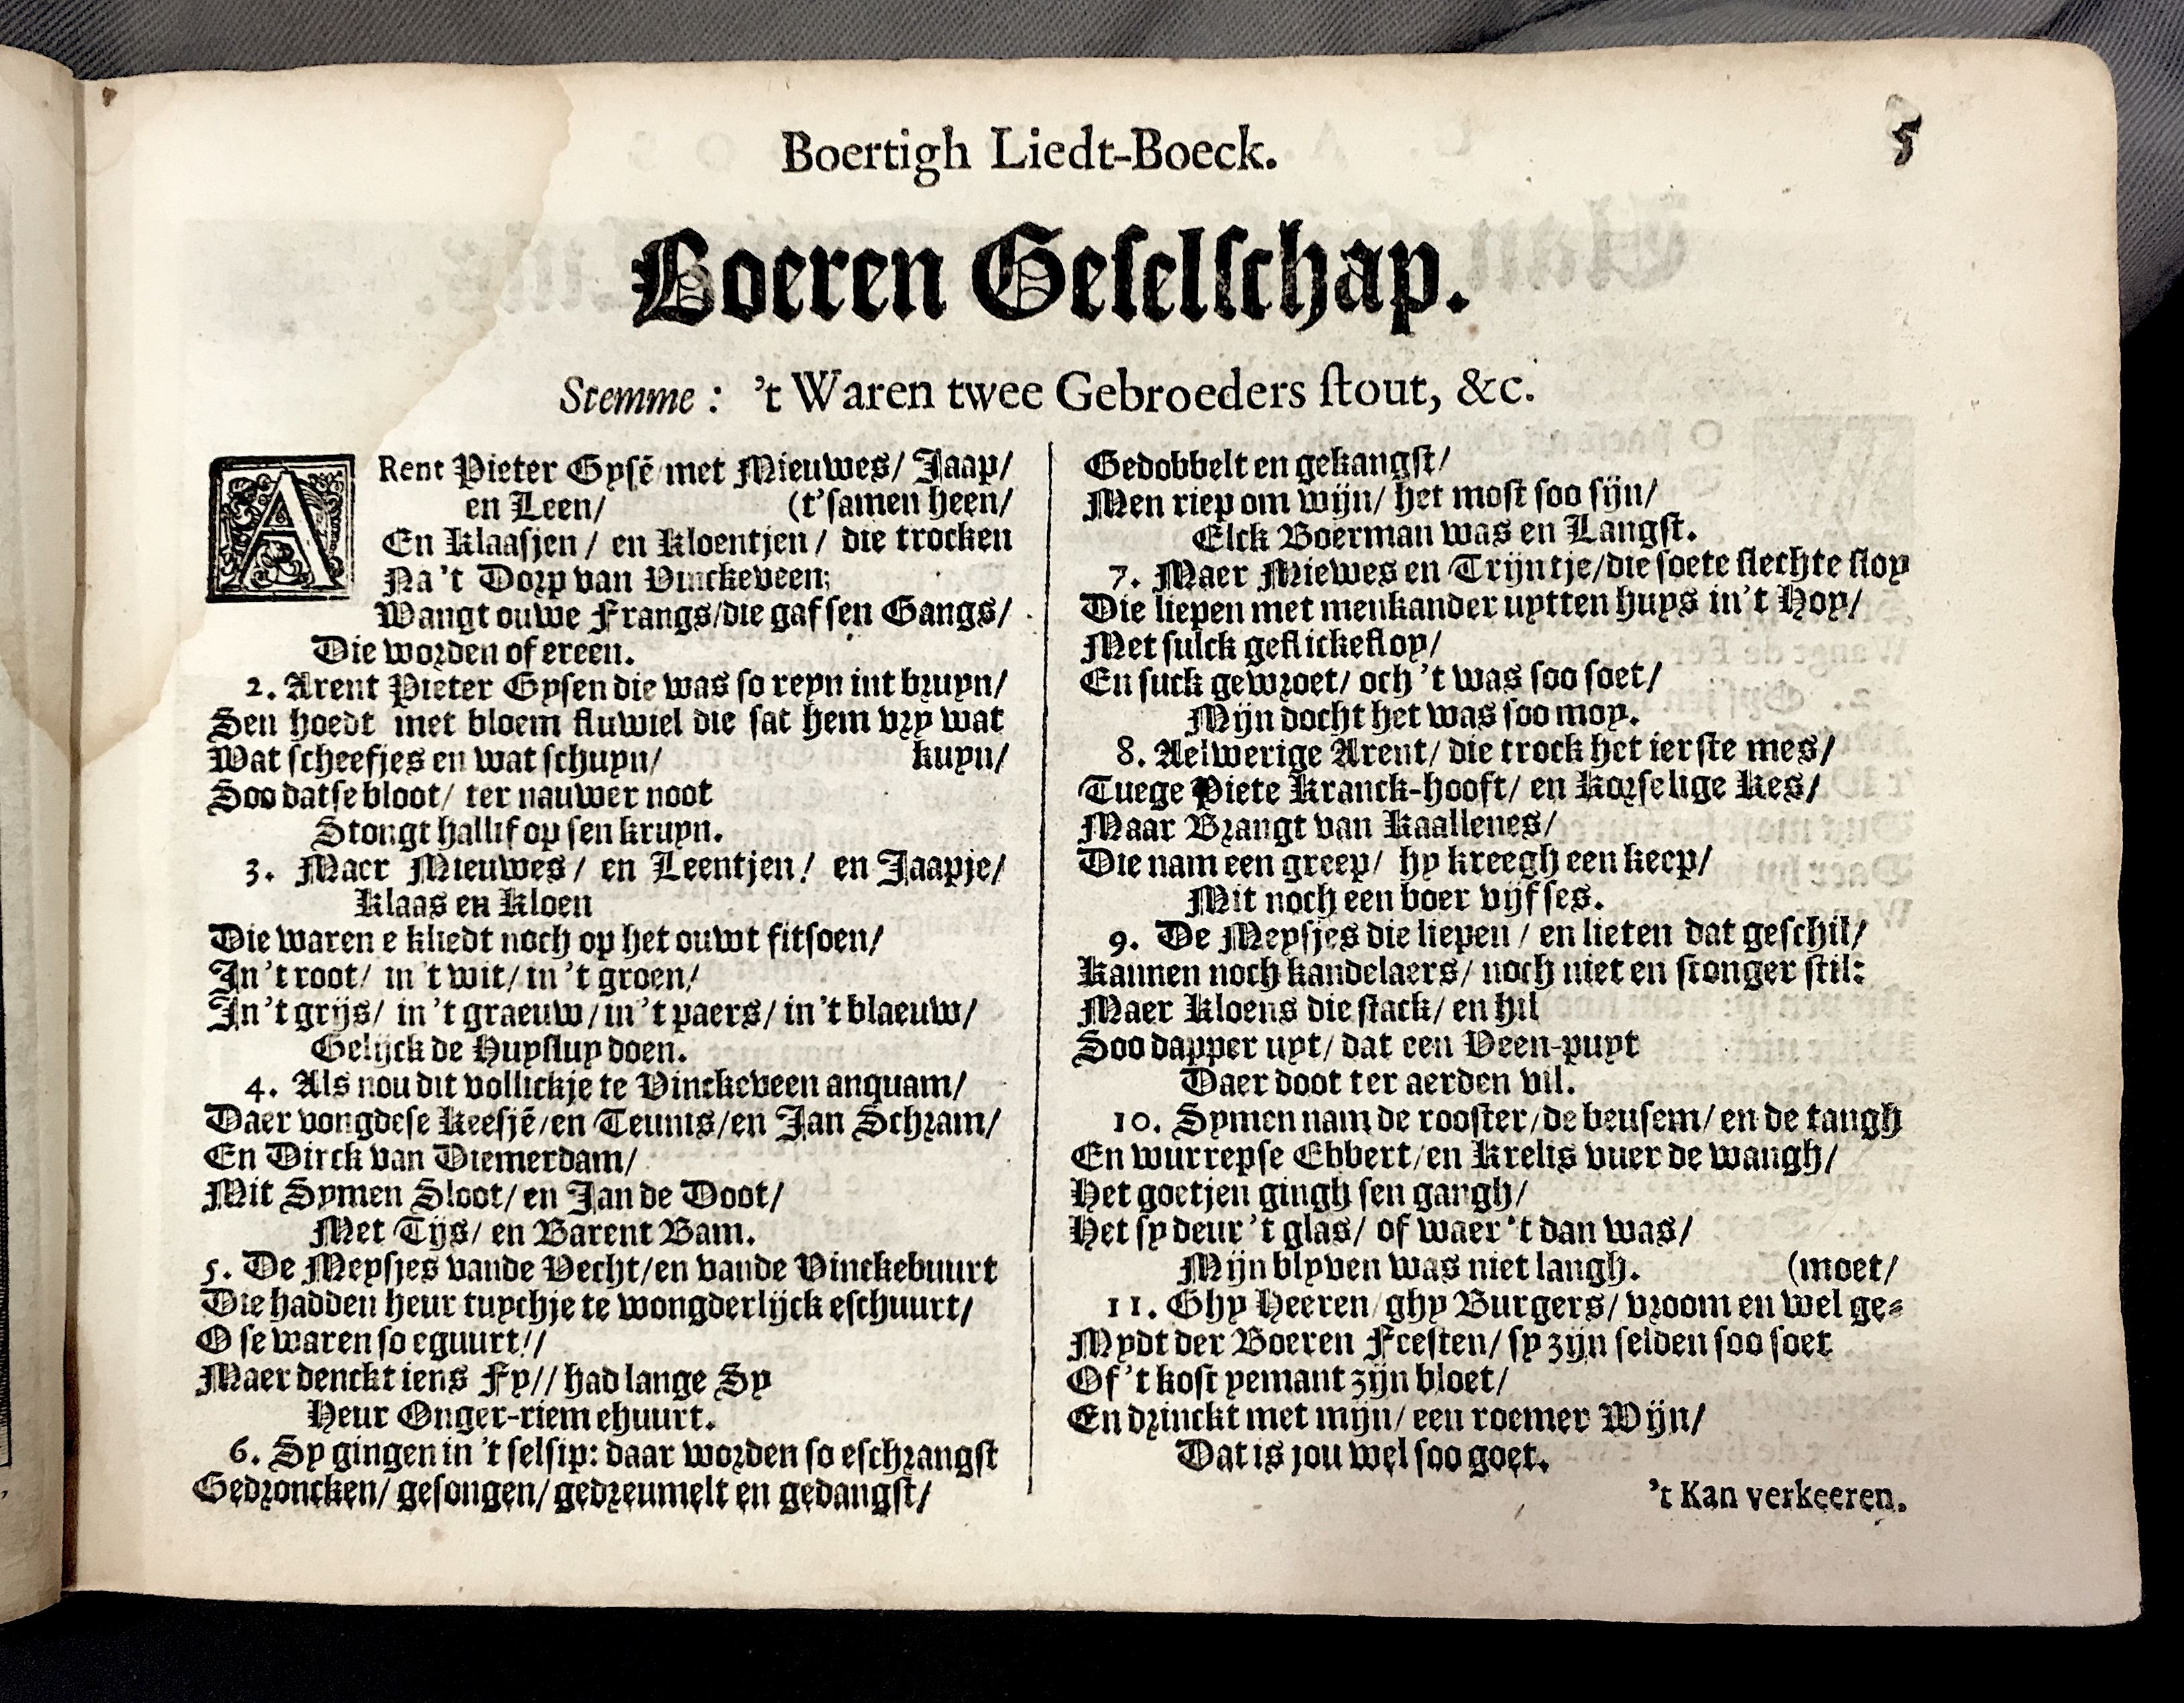 Boertigh Liedt-Boeck.
5
Boeren Geselschap.
Stemme: 't Waren twee Gebroeders stout, &c.
ARent Pieter Gysẽ met Mieuwes/ Jaap/
en Leen/ (t'samen heen/
En Klaasjen / en Kloentjen / die trocken
Na't Dorp van Vinckeveen;
Wangt ouwe Frangs/die gaf sen Gangs/
Die worden of ereen.
2. Arent Pieter Gysen die was so reyn int bruyn/
Sen hoedt met bloem fluwiel die sat hem vry wat
Wat scheefjes en wat schuyn/ kuyn/
Soo datse bloot/ ter nauwer noot
Stongt hallif op sen kruyn.
3. Maer Mieuwes / en Leentjen / en Jaapje/
Klaas en Kloen
Die waren e kliedt noch op het ouwt fitsoen/
In 't root/ in 't wit/ in 't groen/
In 't grijs/ in 't graeuw/in 't paers/ in 't blaeuw/
Gelijck de Huysluy doen.
4. Als nou dit vollickje te Vinckeveen anquam/
Daer vongdese Keesjẽ/en Teunis/en Jan Schram/
En Dirck van Diemerdam/
Mit Symen Sloot/ en Jan de Doot/
Met Tijs/ en Barent Bam.
5. De Meysjes vande Vecht/en vande Vinckebuurt
Die hadden heur tuychje te wongderlijck eschuurt/
O se waren so eguurt!/
Maer denckt iens Fy// had lange Sy
Heur Onger-riem ehuurt.
6. Sy gingen in 't selsip: daar worden so eschrangst
Gedroncken/ gesongen/ gedreumelt en gedangst/
Gedobbelt en gekangst/
Men riep om wijn/ het most soo sijn/
Elck Boerman was en Langst.
7. Maer Miewes en Trijntje/die soete slechte sloy
Die liepen met menkander uytten huys in't Hoy/
Met sulck geflickefloy/
En suck gewroet/ och 't was soo soet/
Mijn docht het was soo moy.
8. Aelwerige Arent/ die trock het ierste mes/
Tuege Piete Kranck-hooft/ en Korselige Kes/
Maar Brangt van Kaallenes/
Die nam een greep/ hy kreegh een keep/
Mit noch een boer vijf ses.
9. De Meysjes die liepen / en lieten dat geschil/
Kannen noch kandelaers/ noch niet en stonger stil:
Maer Kloens die stack/ en hil
Soo dapper uyt/ dat een Veen-puyt
Daer doot ter aerden vil.
10. Symen nam de rooster/de beusem/ en de tangh
En wurrepse Ebbert/en Krelis vuer de wangh/
Het goetjen gingh sen gangh/
Het sy deur 't glas/ of waer 't dan was/
Mijn blyven was niet langh. (moet/
11. Ghy Heeren/ghy Burgers/ vroom en wel ge-
Mydt der Boeren Feesten/ sy zijn selden soo soet
Of 't kost yemant zijn bloet/
En drinckt met mijn/ een roemer Wijn/
Dat is jou wel soo goet.
't Kan verkeeren.